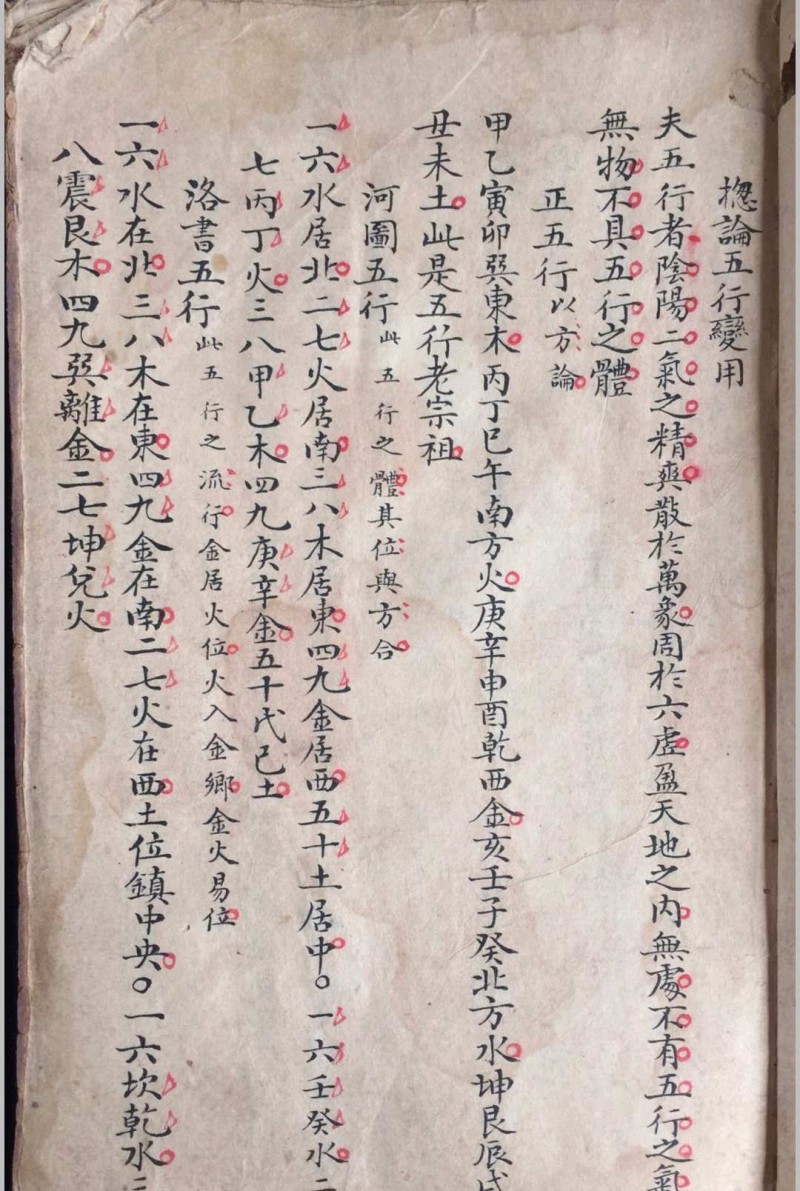 揔論五行變用
夫五行者陰陽二氣之精爽散於萬象周於六虛盈天地之內無處不有五行之氣
無物不具五行之體
正五行以方論
甲乙寅卯巽東木丙丁巳午南方火庚辛申酉乾西金亥壬子癸北方水坤艮辰戌
丑未土此是五行老宗祖
河圖五行此五行之體其位與方合
一六水居北二七火居南三八木居東四九金居西五十土居中○一六壬癸水二
七丙丁火三八甲乙木四九庚辛金五十戊己土
洛書五行此五行之流行金居火位火入金鄉金火易位
一六水在北三八木在東四九金在南二七火在西土位鎮中央○一六坎乾水三
八震艮木四九巽離金二七坤兌火